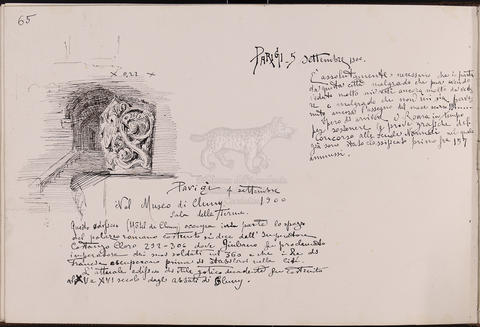 65
x 0,22 x
Parigi 4 settembre
1900
Nel Museo di Cluny
Sala delle Terme.
Questo edificio (Hôtel di Cluny) occupa in parte lo spazio
del palazzo romano costruito si dice dall'Imperatore
Costanzo Cloro 292-306 dove Giuliano fu proclamato
imperatore dai suoi soldati nel 360 e che i Re di
Francia occuparono prima di stabilirsi nella Cité.
L'attuale edificio di stile gotico decadente fu costruito
al XV e XVI secolo dagli abbati di Cluny.
Parigi - 5 settembre 1900.
E' assolutamente necessario che io parta
da questa città malgrado che pur avendo
veduto molto mi resti ancora molto da vedere
e malgrado che non mi sia
ancora l'assegno del mese
Spero di arrivare a Roma in tempo
per sostenere le prove grafiche del
Concorso alle Scuole Normali al quale
già sono stato classificato primo fra 137
ammessi.